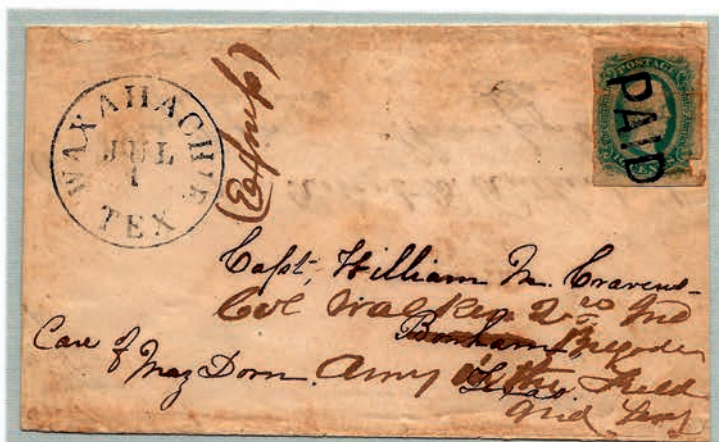 WAXAHACHIE
JUL
1
TEX
POSTAGE
PAID
Capt, William M. Cravens
Col Walker 2nd Ind
Bonham Brigade
Care of Maj Dorn. Army in the Field
Texas
Ind